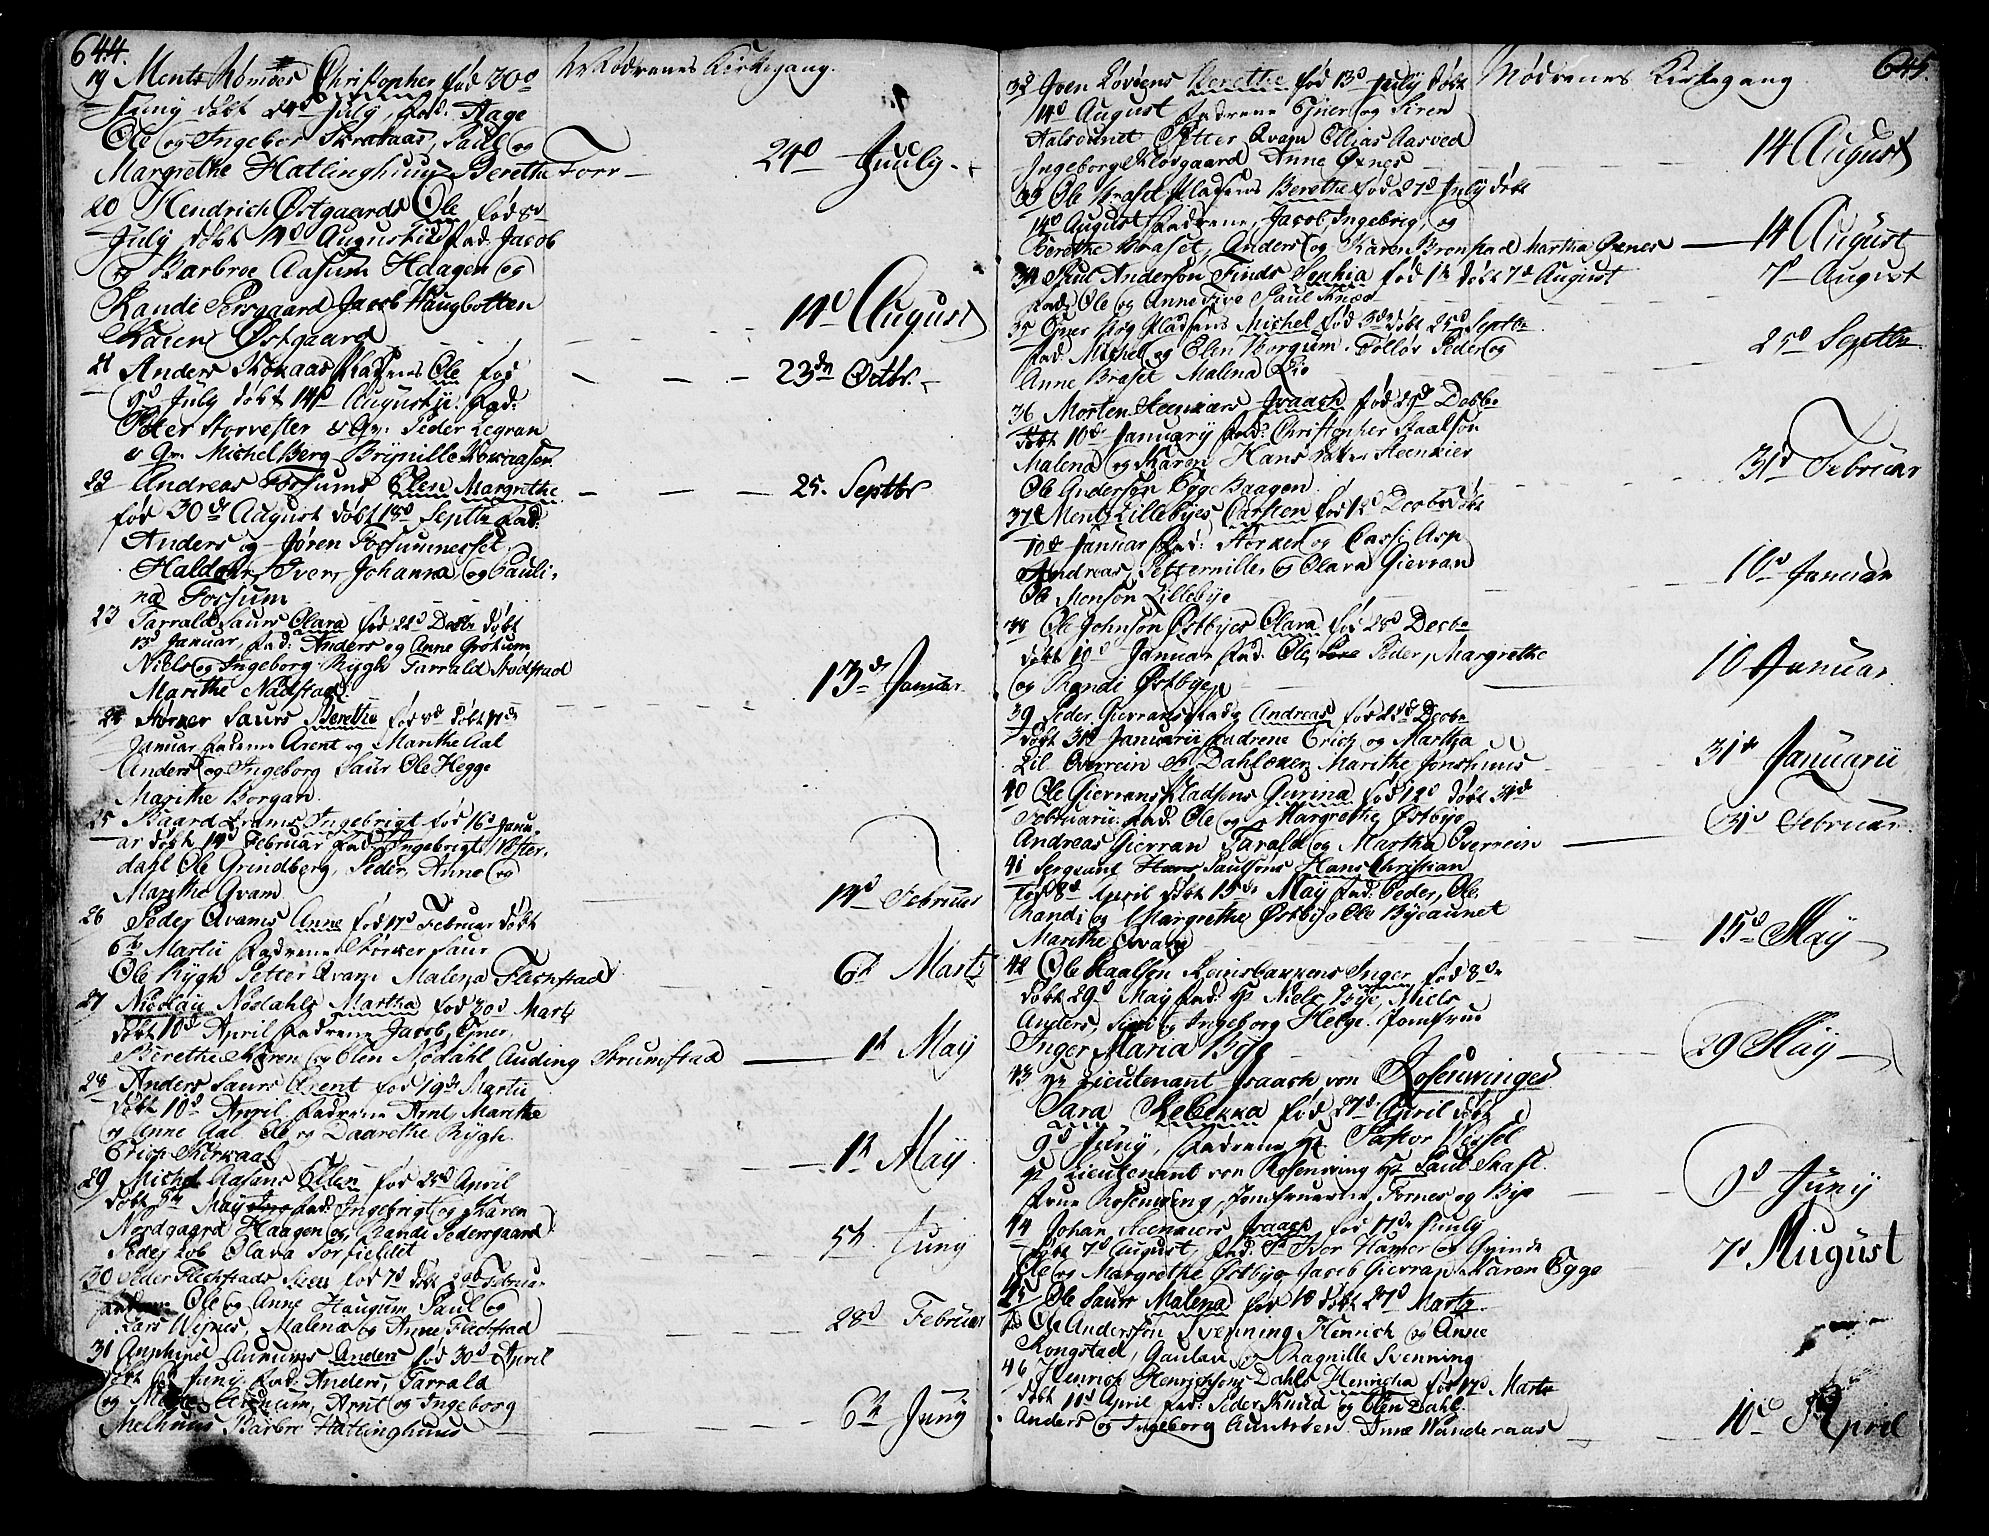 644.
Mødrenes Kirkegang.
19 Ments Homoes Christopher fød 30d
Juny døbt 24d July, Fad: Aage
Ole og Ingebor Skrataas, Paul og
Margrethe Hallinghuus Berethe Forr
24d July
20 Hendrich Østgaards Ole fød 8d
July døbt 14d Augustii Fad: Jacob
og Barbroe Aasum Haagen og
Randi Persgaard Jacob Haugbotten
Karen Østgaard
14d August
21 Anders Kokaas Pladsens Ole fød
9d July døbt 14d Augustii. Fad:
Peter Storvester Gr. Peder Legran
Gr. Michel Berg Brynille Kokaasen
23de Octbr.
22 Andreas Forsums Elen Margrethe
fød 30de August døbt 18d Septbr Fad:
Anders og Jøren Forsumnesset
Haldoer, Iver, Johanna og Pauli-
na Forsum
25. Septbr
23 Tarrald Saurs Clara fød 22d Decbr døbt
13d Januar, Fad: Anders og Anne Grotum
Niels og Ingeborg Rygh Tarrald Stodstad
Marithe Nadstad
13de Januar
24 Størker Saurs Berethe fød 8d døbt 17de
Januar Fadrene Arent og Marithe Aal
Anders og Ingeborg Saur Ole Hegge
Marithe Borgan.
25 Baard Ingebrigt fød 16d Janu-
ar døbt 14d Februar Fad: Ingebrigt Vester-
dahl Ole Grindberg, Peder, Anne og
Marithe Qvam
14d Februar
26 Peder Qvams Anne fød 17d Februar døbt
6te Martii Fadrene Størker Saur
Ole Rygh Petter Qvam Malena Flechstad
6te Marti
27 Nicolaii Nødahls Martha fød 20d Marti
døbt 10de April Fadrene Jacob, Einer,
Berethe Karen og Elen Nødahl Auding Strumstad
1te May
28 Anders Saurs Arent fød 19de Martii
døbt 10d April Fadrene Arnt, Marithe
og Anne Aal. Ole og Daarethe Rygh.
Erich Korsaal
1te May
29 Michel Aasens Ellen fød 22d April
døbt 5te May Fad: Ingebrigt og Karen
Nordgaard Haagen og Randi Pedersgaard
Peder Lob Clara Forfieldet
5te Juny
30 Peder Flechstads fød 7d døbt 28d Februar
Ole og Anne Haugum Paul og
Lars Wesnes, Malena og Anne Flechstad
28d Februar
31 Amphind Aunums Anders fød 30d April
døbt 6d Juny Fad: Anders, Tarrald
og Aunum, Arnt og Ingeborg
Melhuus Barbre Hallinghuus
6te Juny
645.
Mødrenes Kirkegang
32 Iven Løviens Berethe fød 13d July døbt
14d August Fadrene Einer og Siren
Aalsaunet Petter Qvam Ellias Aasved
Ingeborg Klovgaard Anne Oxnes
14 August
33 Ole Braset Pladsens Berethe fød 27d July døbt
14d August Fadrene, Jacob, Ingebrig, og
Berethe Braset, Anders og Karen Bronstad Martha Oxnes
14 August
34 Poul Anderson Finds Sophia fød 1te døbt 7d August
Fad: Ole og Anne Five Paul Knæd
7d August
35 Einer Borg Pladsens Michel fød 3de døbt 25d Septbr
Fad: Michel og Elen Borgum. Tolløv Peder og
Anne Braset Malena Lio
25d Septbr
36 Morten Heenkiers Isaach fød 29d Decbr
døbt 10de January Fad: Christopher Staalsøn
Malena og Karen Hans Heenkier
Ole Anderson Egge Baagen
31d Februar
37 Ments Lillebyes Carsten fød 12 Decbr døbt
10de Januar Fad: Størker og Cassi Asp
Andreas, Petternille og Clara Gierran
Ole Monsøn Lillebye
10d Januar
38 Ole Johnson Østbyes Clara fød 28d Decbr
døbt 10d Januar Fad: Ole, Peder, Margrethe
og Randi Østbye
10 Januar
39 Peder Gierrans Andreas fød 23d Decbr
døbt 31d Januarii Fadrene Erich og Martha
Lil Overrein Dahlcken Marithe Jonshuus
31de Januarii
40 Ole Gierrans Pladsens Gurina fød 12d døbt 31de
Februarii. Fad: Ole og Margrethe Østbye
Andreas Gierran Tarald og Martha Overrein
31d Februar.
41 Sergeant Paulsons Hans Christian
fød 8d April døbt 15de May Fad: Peder, Ole,
Randi og Margrethe Østbye Ole Byeaunet
Marithe Qvam
15d May
42 Ole Staalsøn Reinsbakkens Inger fød 8de
døbt 29d May Fad: Hr Niels Bye, Niels
Anders, Siri og Ingeborg Helge. Jomfrue
Inger Maria Bye
29 May
43 Hr Lieutenant Isaach von Rosenvinges
Sara Rebekka fød 27d April døbt
9d Juny, Fadrene Hr Pastor Wessel
Hr Lieutenant von Rosenving Hr Paul Skafl.
Frue Rosenveng, Jomfruerne Fornes og Bye
9d Juny
44 Johan Heenkiers Isaach fød 17de July
døbt 7d August, Fad: Hr Bor Hamer og Qvinde
Ole og Margrethe Østbye Jacob Gierran Karen Egge
7d August
45 Ole Saurs Malena fød 18 døbt 27d Marti
Fad Ole Anderssøn Svenning Henrich og Anne
Rongstad, Gaulav og Ragnille Svenning
46 Henrich Henrichsøns Dahls Henricha fød 17d Marti
døbt 10d April Fad: Peder Knud og Elen Dahl.
Anders og Ingeborg Aunsten Anne Wanderaas
10d April